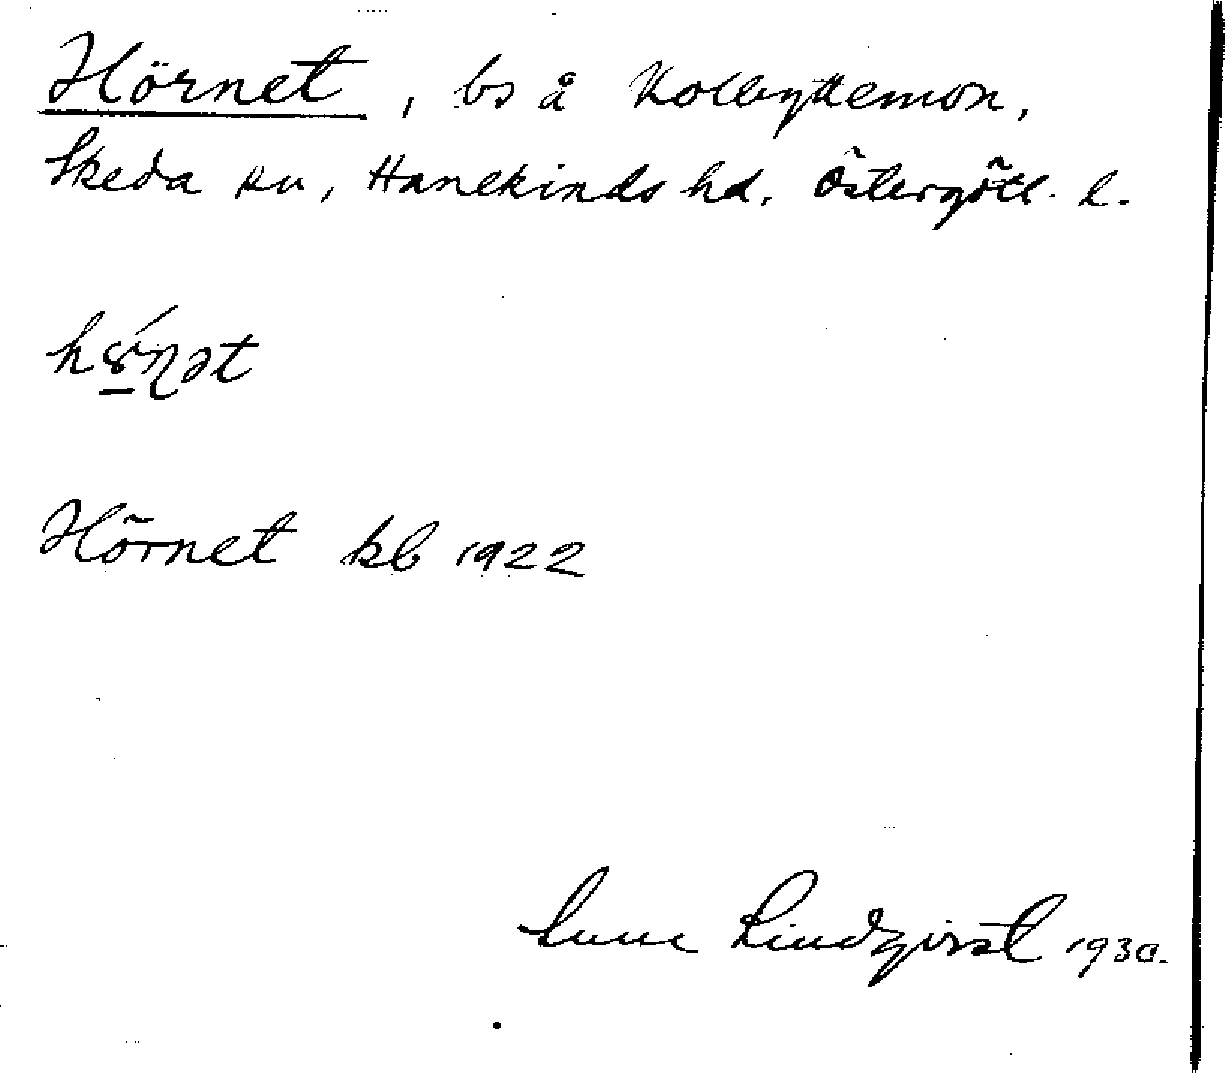 Hörnet, bs å Kolbyttemon,
Skeda sn, Hanekinds hd, Östergötl. l.
Hörnet kb 1922
Sune Lindqvist 1930.